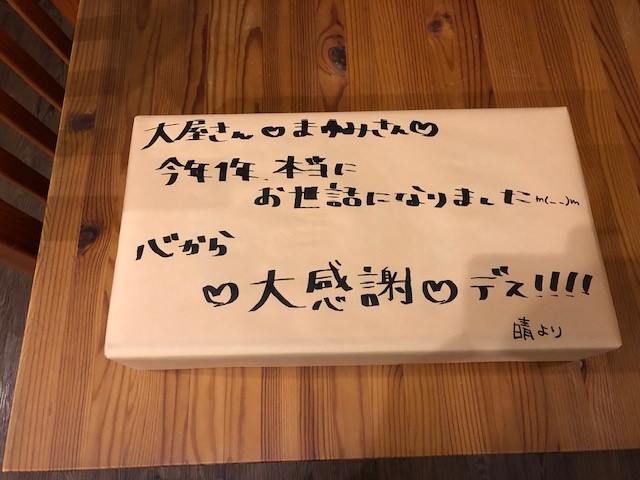 大屋さん♡まゆみさん♡
今年1年、本当に
お世話になりましたm(_ _)m
心から
♡大感謝♡デス!!!!
晴より